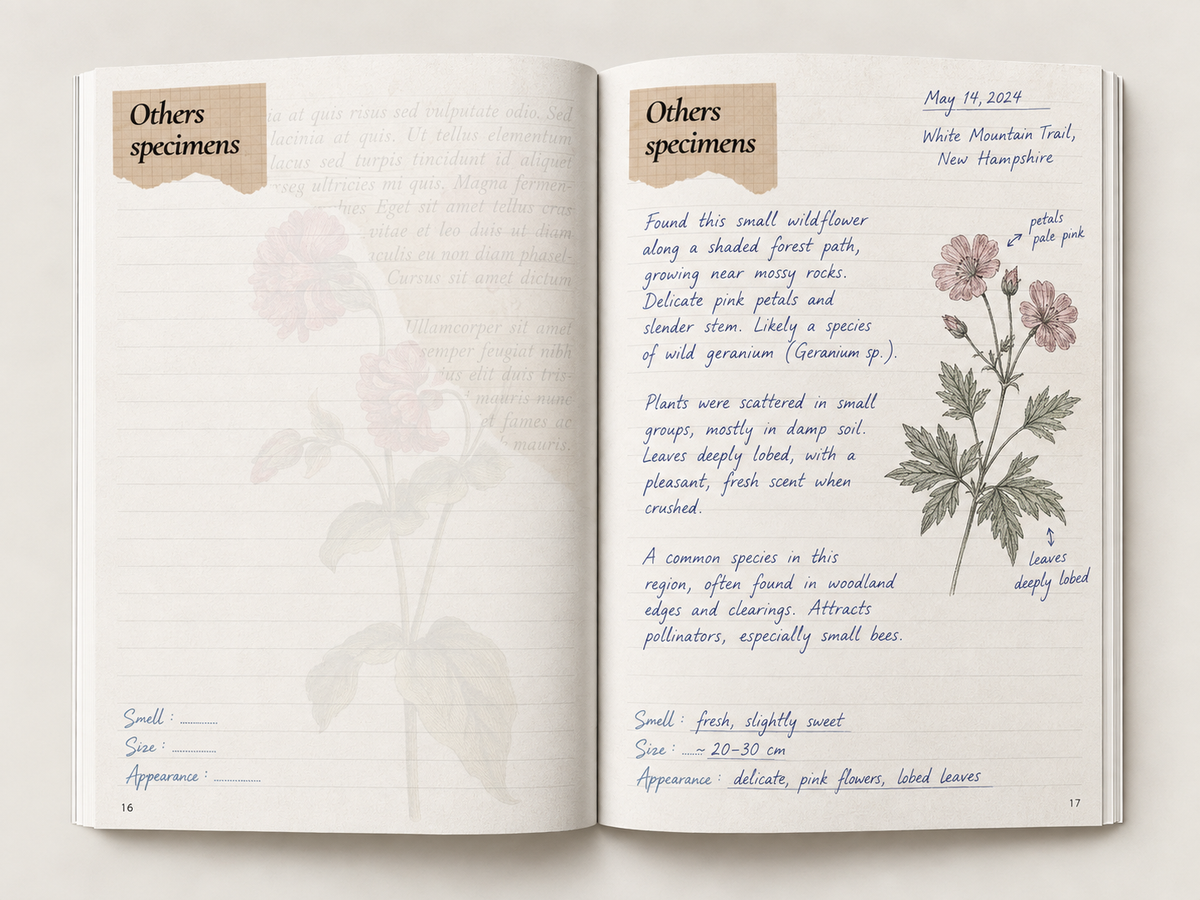 Others
specimens
ia at quis risus sed vulputate odio. Sed
lacinia at quis. Ut tellus elementum
lacus sed turpis tincidunt id aliquet
seg ultricies mi quis. Magna fermen-
Eget sit amet tellus cras
vitae et leo duis ut diam
iaculis eu non diam phasel-
Cursus sit amet dictum
Ullamcorper sit amet
semper feugiat nibh
elit duis tris-
mauris nunc
et fames ac
mauris.
Smell :
Size :
Appearance :
16
Others
specimens
May 14, 2024
White Mountain Trail,
New Hampshire
Found this small wildflower
along a shaded forest path,
growing near mossy rocks.
Delicate pink petals and
slender stem. Likely a species
of wild geranium (Geranium sp.).
petals
pale pink
Plants were scattered in small
groups, mostly in damp soil.
Leaves deeply lobed, with a
pleasant, fresh scent when
crushed.
leaves
deeply lobed
A common species in this
region, often found in woodland
edges and clearings. Attracts
pollinators, especially small bees.
Smell : fresh, slightly sweet
Size : ~ 20–30 cm
Appearance : delicate, pink flowers, lobed leaves
17